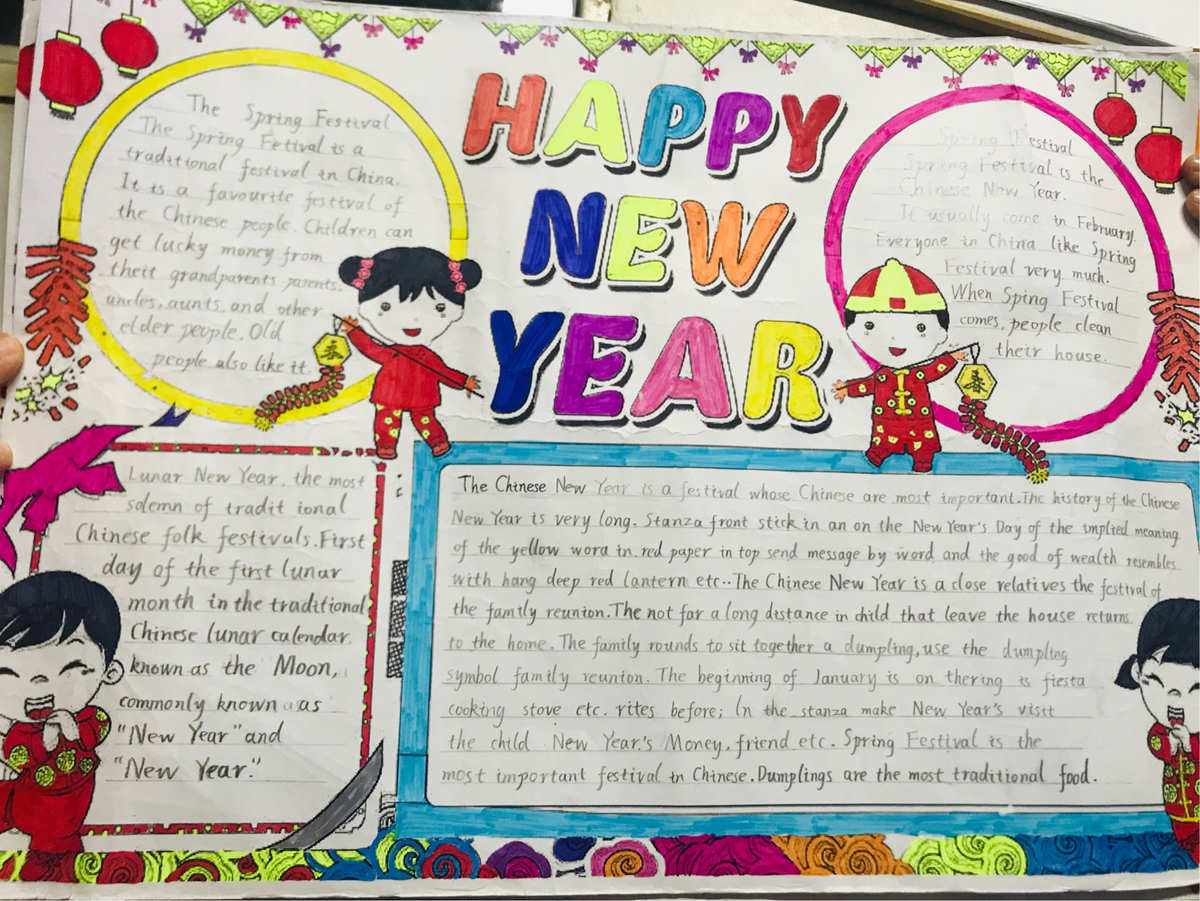 HAPPY
NEW
YEAR
The Spring Festival
The Spring Fetival is a
traditional festival in China.
It is a favourite festival of
the Chinese people. Children can
get lucky money from
their grandparents parents.
uncles, aunts and other
elder people. Old
people also like it.
春
Spring Festival
Spring Festival is the
Chinese New Year.
It usually come in February.
Everyone in China like Spring
Festival very much.
When Sping Festival
comes, people clean
their house.
春
Lunar New Year, the most
solemn of tradit ional
Chinese folk festivals. First
day of the first lunar
month in the traditional
Chinese lunar calendar.
known as the Moon,
commonly known as
"New Year" and
"New Year."
The Chinese New Year is a festival whose Chinese are most important. The history of the Chinese
New Year is very long. Stanza front stick in an on the New Year's Day of the implied meaning
of the yellow word in red paper in top send message by word and the good of wealth resembles
with hang deep red lantern etc.. The Chinese New Year is a close relatives the festival of
the family reunion. The not for a long distance in child that leave the house returns
to the home. The family rounds to sit together a dumpling, use the dumpling
symbol family reunion. The beginning of January is on thering is fiesta
cooking stove etc. rites before; In the stanza make New Year's visit
the child New Year's Money, friend etc. Spring Festival is the
most important festival in Chinese. Dumplings are the most traditional food.